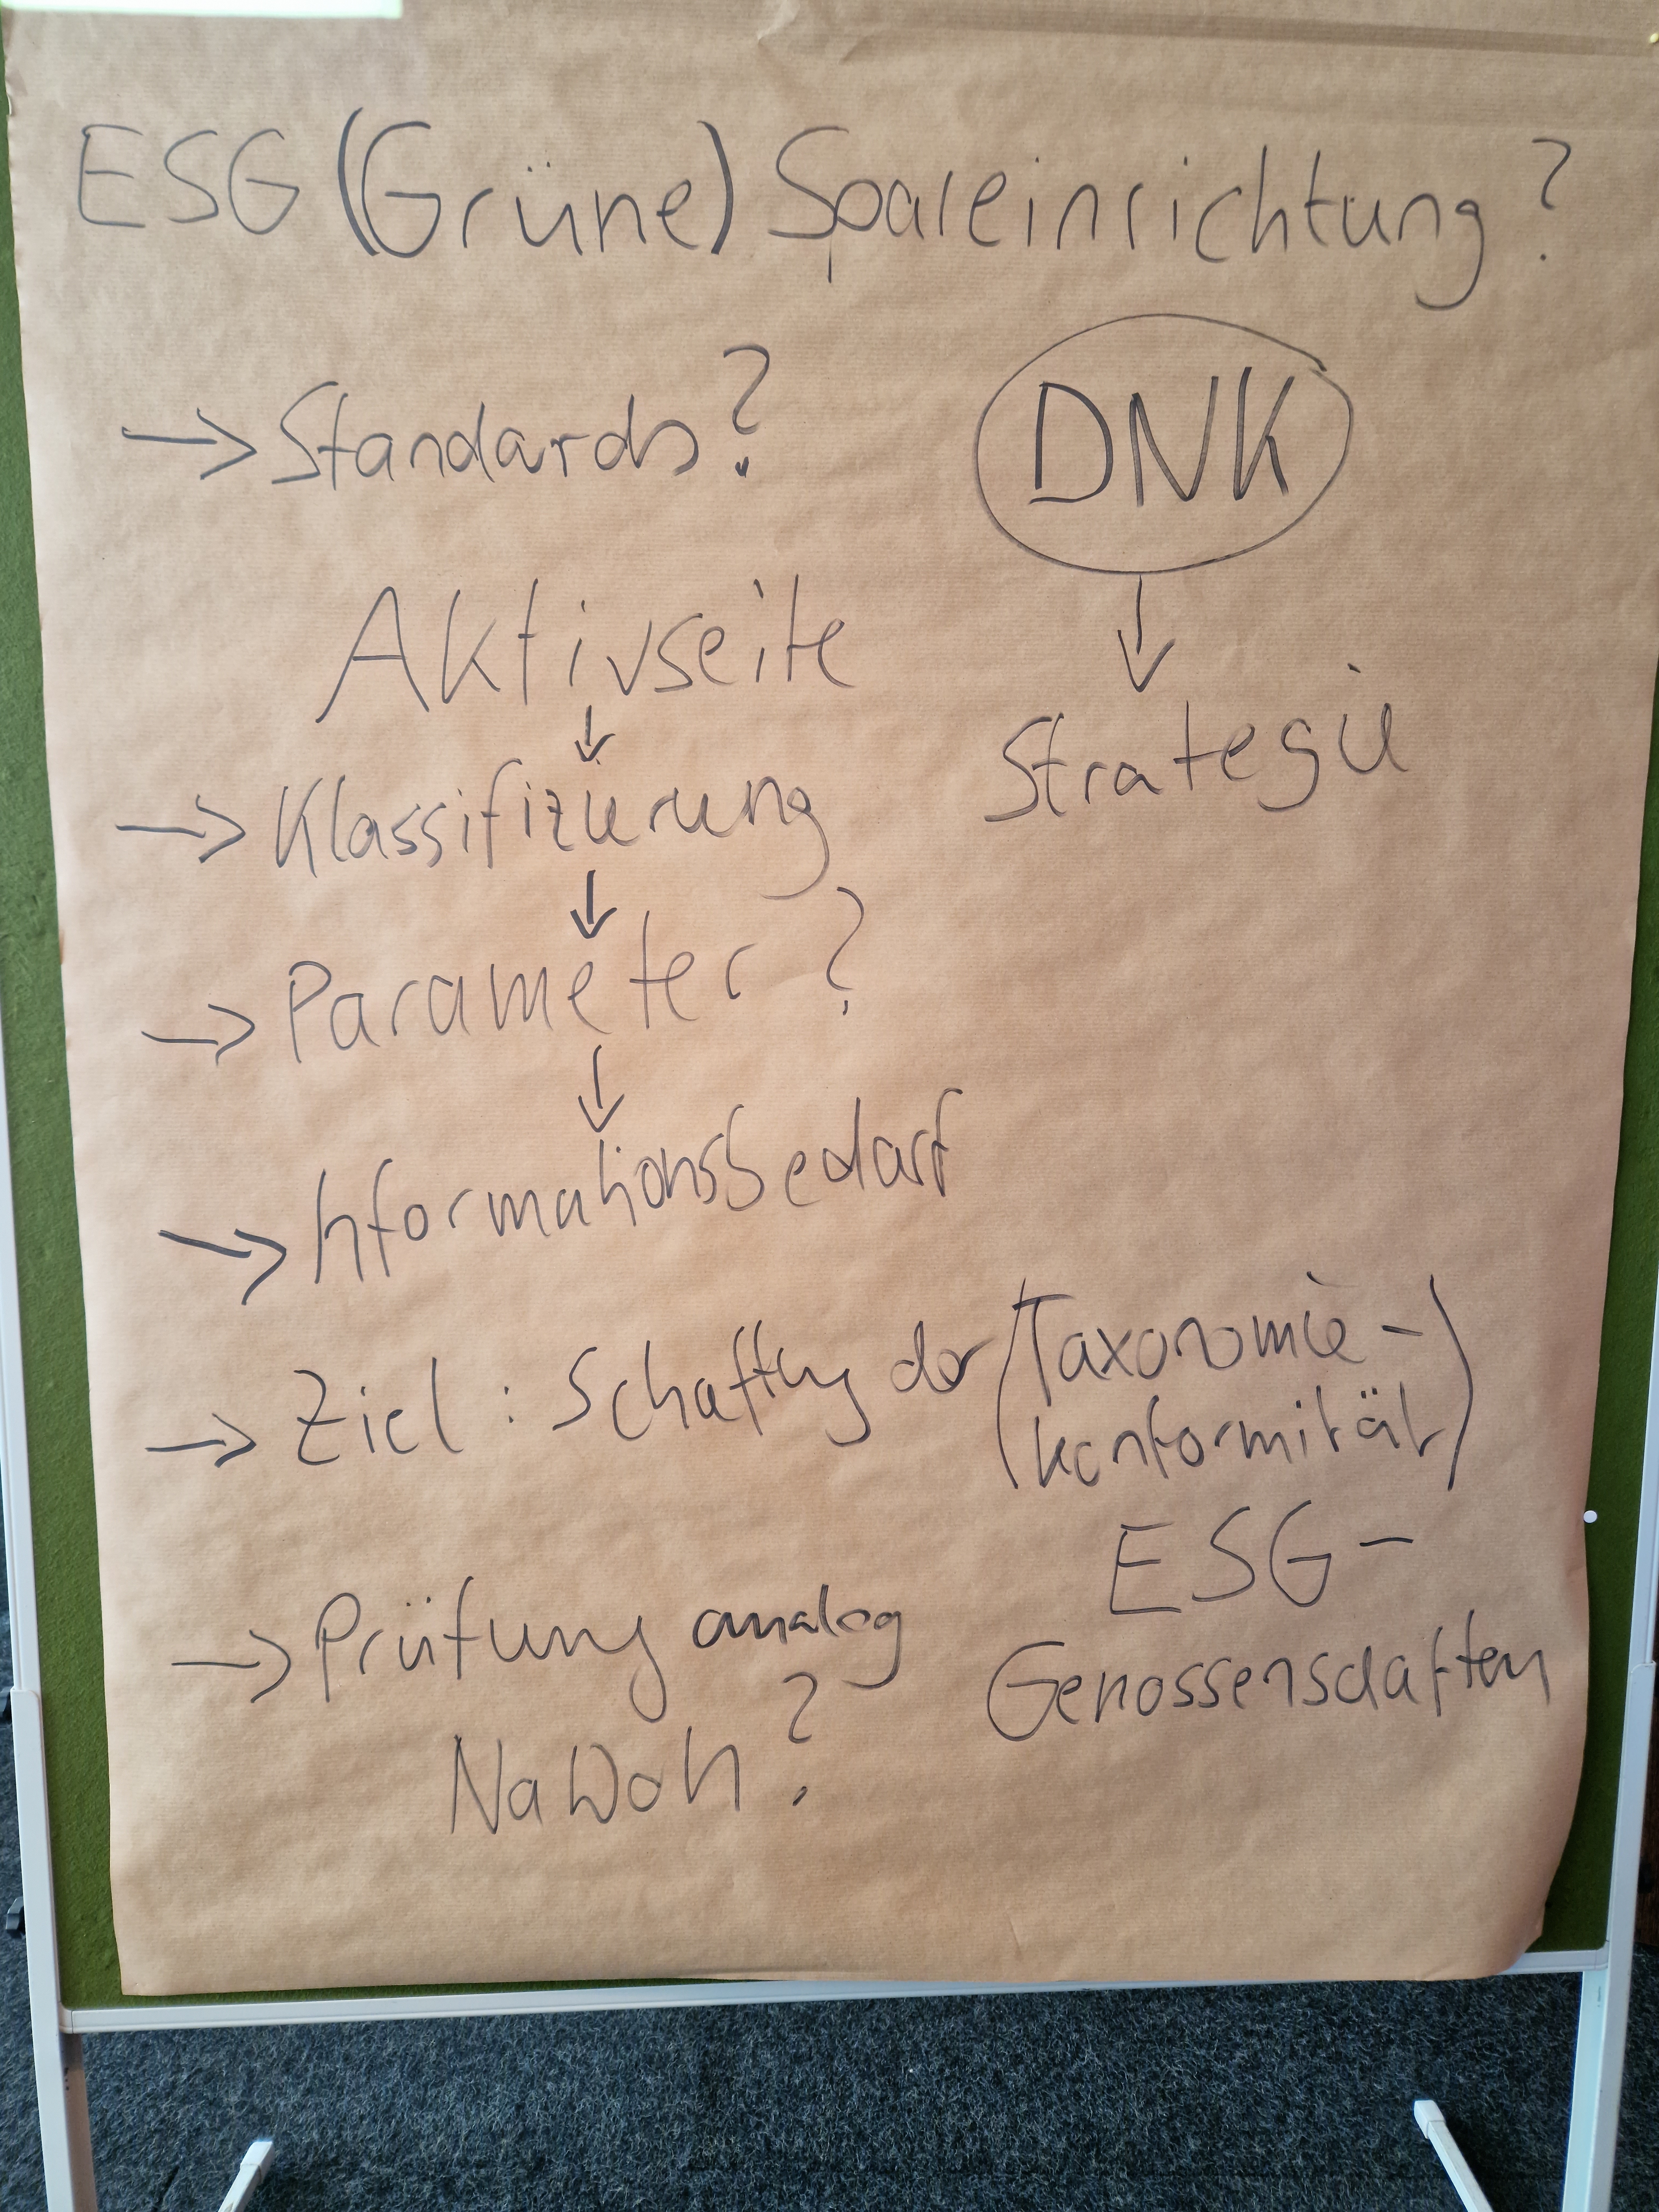 ESG (Grüne) Spareinrichtung?
→ Standards?
DNK
↓
Aktivseite
Strategie
↓
→ Klassifizierung
↓
→ Parameter?
↓
→ Informationsbedarf
→ Ziel: Schaffung der (Taxonomie-
konformität)
ESG-
Genossenschaften
→ Prüfung analog
NaWoh?